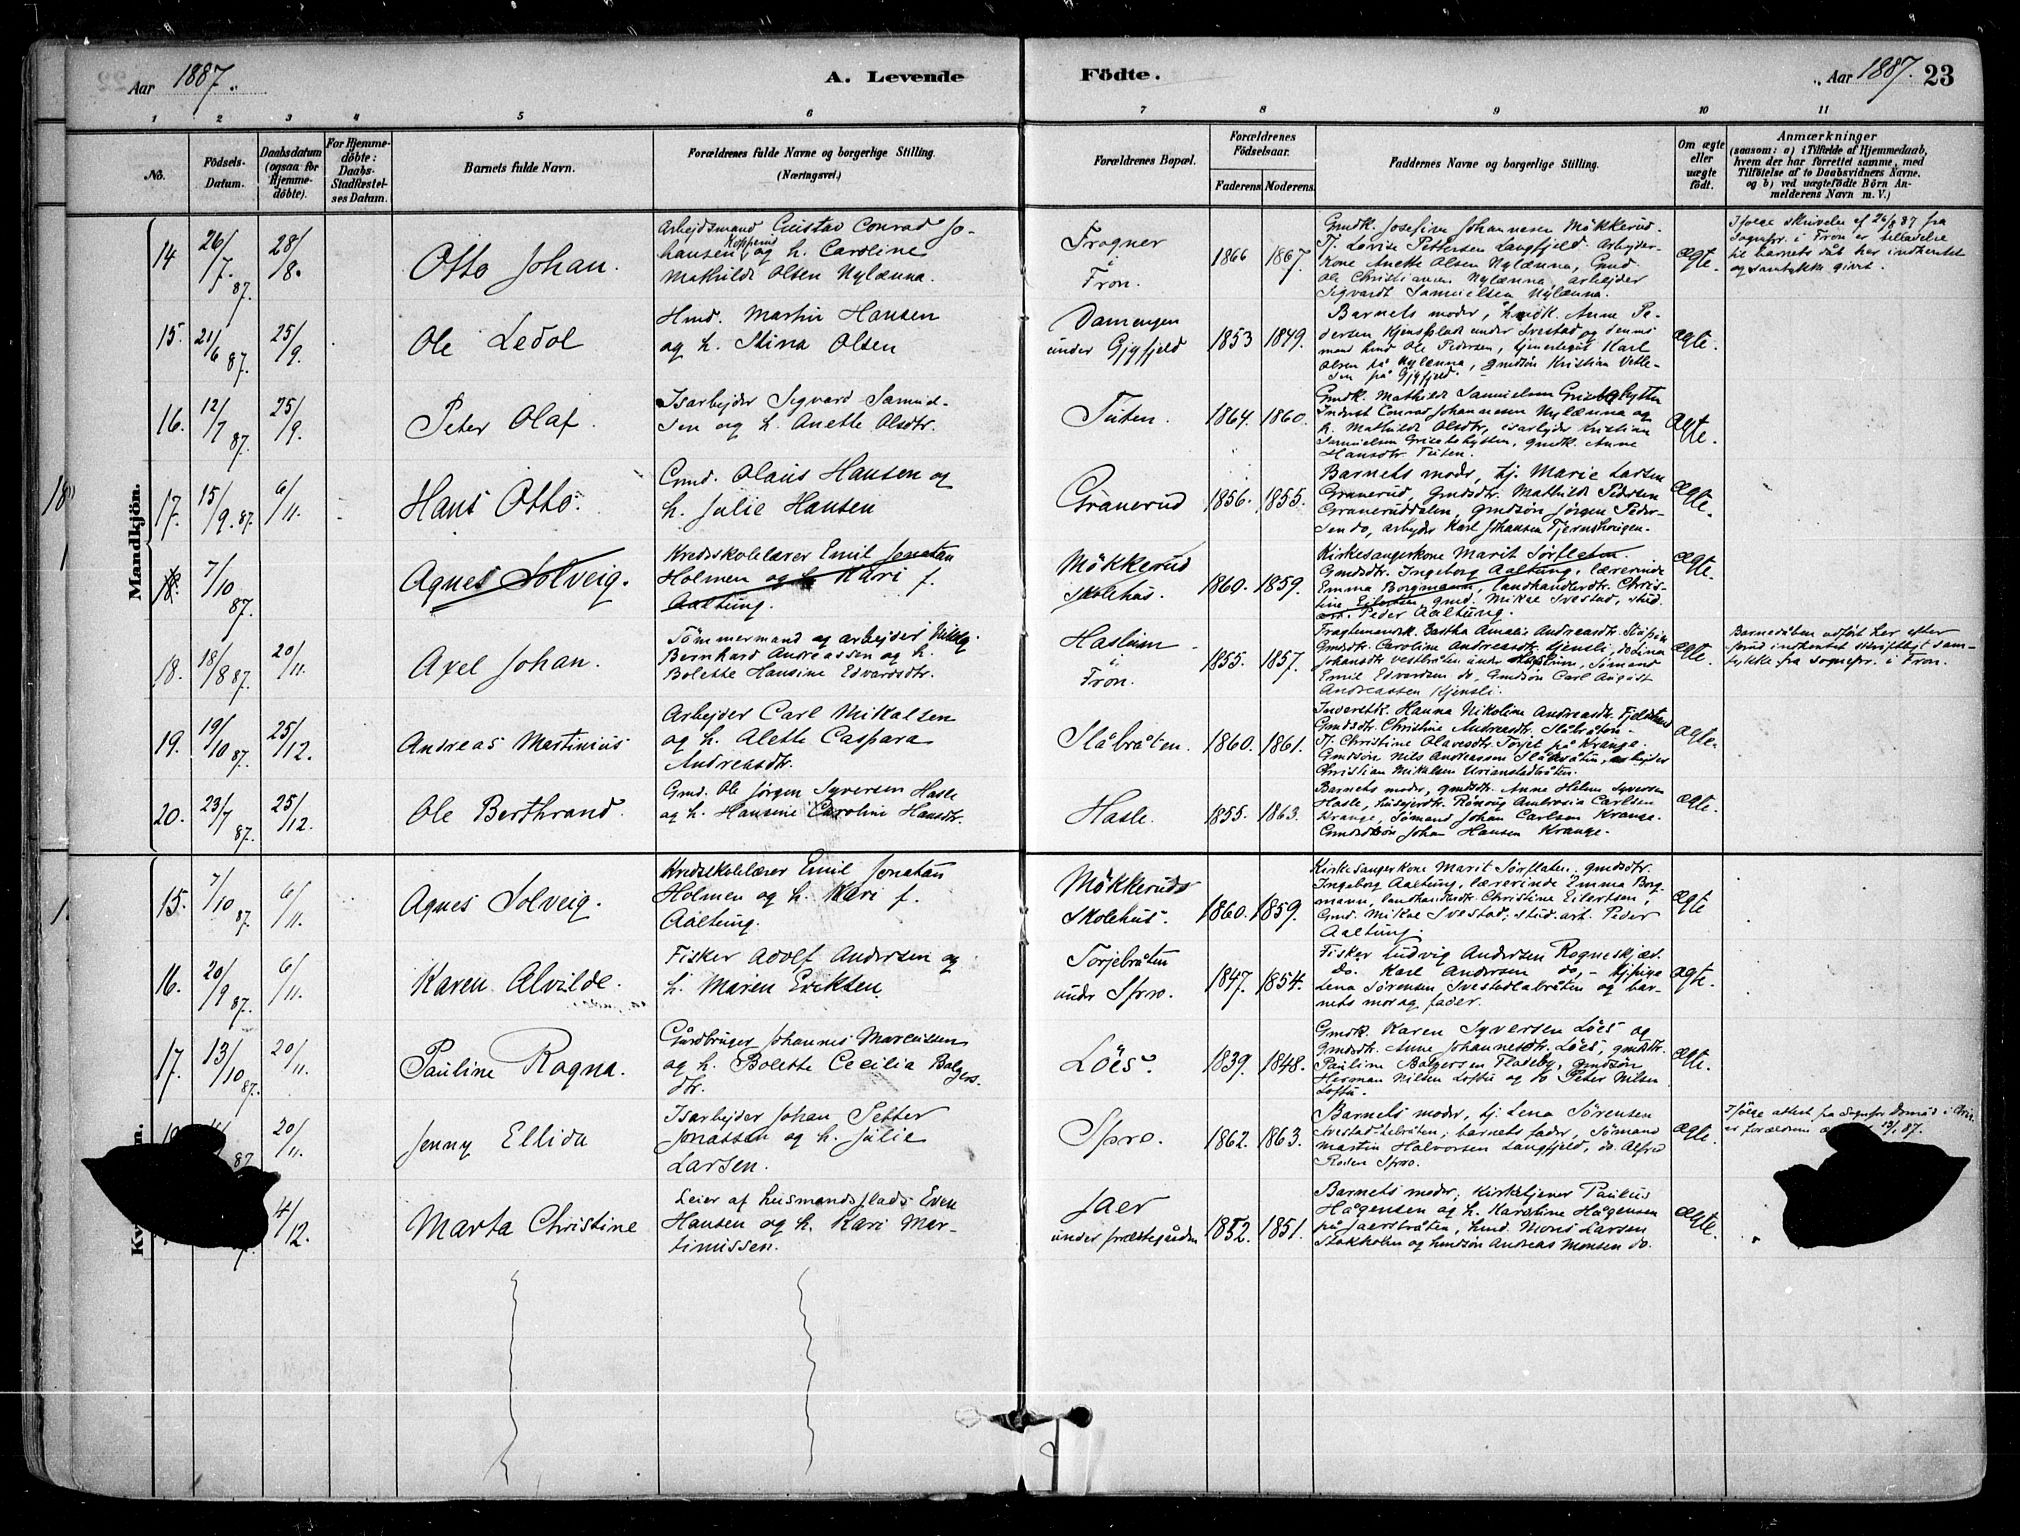 Aar 1887.
A. Levende
Födte.
Aar 1887. 23
1 2 3 4 5 6 7 8 9 10 11
No.
Födsels-
Datum.
Daabsdatum
(ogsaa for
Hjemme-
döbte).
For Hjemme-
döbte:
Daabs-
Stadfæstel-
ses Datum.
Barnets fulde Navn.
Forældrenes fulde Navne og borgerlige Stilling.
(Næringsvei.)
Forældrenes Bopæl.
Forældrenes
Födselsaar.
Faderens. Moderens.
Faddernes Navne og borgerlige Stilling.
Om ægte
eller
uægte
födt.
Anmærkninger
(saasom: a) i Tilfælde af Hjemmedaab,
hvem der har forrettet samme, med
Tilföielse af to Daabsvidners Navne.
og b) ved uægtefödte Börn An-
melderens Navn m. V.)
Mandkjön.
14
26/7. 87.
28/8.
Otto Johan.
Arbejdsmand Gustav Conrad Jo-
hansen Kopperud og h. Caroline
Mathilde Olsen Nylænna.
Frogner
i
Fron.
1866 1867.
Gmdk. Josefine Johannesen Mökkerud.
Tj. Lovise Pettersen Langfjeld. Arbejder-
kone Anette Olsen Nylænna, Gmd.
Ole Christiansen Nylænna, arbejder
Sigvardt Samuelsen Nylænna.
ægte.
Ifölge skrivelse af 26/8 87 fra
Sognepr. i Fron er tilladelse
til barnets dåb her indhentet
og samtykke givet.
15.
21/6 87.
25/9.
Ole Ledol
Hmd. Martin Hansen
og h. Stina Olsen
Damengen
under Gjyfjeld
1853 1849.
Barnets moder, hmdk. Anne Pe-
dersen Kjensplads under Ivestad og dennes
mand hmd Ole Pedersen, tjenestegut Karl
Olsen på Nylænna, gmdsön Kristian Vetle-
sen på Gjyfjeld.
ægte.
16.
12/7 87.
25/9.
Peter Olaf.
Isarbejder Sigvard Samuel-
sen og h. Anette Olsdtr.
Tuten.
1864. 1860.
Gmdk. Mathilde Samuelsen Grisebohytten
Inderst Conrad Johannesen Nylænna og
h. Mathilde Olsdtr, isarbejder Kristian
Samuelsen Grisebohytten, gmdk. Anne
Hansdtr Tuten.
Ægte.
17.
15/9. 87.
6/11.
Hans Otto.
Gmd. Olaus Hansen og
h. Julie Hansen
Granerud
1856. 1855.
Barnets moder, tj. Marie Larsen
Granerud, Gmdsdtr. Mathilde Pedersen
Graneruddalen, Gmdsön Jörgen Peder-
sen do, arbejder Karl Johansen Tjernshaugen.
ægte.
18.
7/10 87.
Agnes Solveig.
Kredsskolelærer Emil Jonatan
Holmen og h. Kari f.
Aaltung.
Mökkerud
skolehus.
1860. 1859.
Kirkesangerkone Marit Sörflaten.
Gmdsdtr. Ingeborg Aaltung, lærerinde
Emma Borgmann, landhandlerdtr. Chris-
tine Eilertsen, gmd. Mikal Ivestad, stud.
art. Peder Aaltung.
ægte.
18.
18/8 87.
20/11.
Axel Johan.
Tömmermand og arbejder
Bernhard Andreassen og h.
Bolette Hansine Edvardsdtr.
Haslum
i
Fron.
1855. 1857.
Fragtemandsk. Bertha Amalie Andreasdtr.
Gmdsdtr. Caroline Andreasdtr Kjensli,
Johansdtr Vestbråten under Haslum, Sömand
Emil Edvardsen do, Gmdsön Carl August
Andreassen Kjensli.
ægte.
Barnedåben udfört her efter
forud indhentet skriftligt sam-
tykke fra sognepr. i Fron.
19.
19/10 87.
25/12.
Andreas Martinius
Arbejder Carl Mikalsen
og h. Alette Caspara
Andreasdtr.
Slåbråten.
1860. 1861.
Hanna Nikoline Andreasdtr. Fjeldstrand
Gmdsdtr. Christine Andreasdtr. Slåbråten.
Tj. Christine Olavesdtr. Torjet på Krange
Gmdsön Nils Andreassen Slåbråten, arbejder
Christian Mikalsen
ægte.
20.
23/7 87.
25/12.
Ole Berthrand.
Gmd. Ole Jörgen Syversen Hasle
og h. Hansine Caroline Hansdtr.
Hasle.
1855. 1863.
Barnets moder, gmdsdtr. Anne Helene Syversen
Hasle, husejerdtr. Rönaug Ambrosia Carlsen
Krange, Sömand Johan Carlsen Krange.
Gmdsön Johan Hansen Krange.
ægte.
15.
7/10 87.
6/11.
Agnes Solveig.
Kredsskolelærer Emil Jonatan
Holmen og h. Kari f.
Aaltung.
Mökkeruds
Skolehus.
1860. 1859.
Kirkesangerkone Marit Sörflaten. gmdsdtr.
Ingeborg Aaltung, lærerinde Emma Borg-
mann, landhandlerdtr Christine Eilertsen,
Gmd. Mikal Ivestad, stud. art. Peder
Aaltung.
ægte
16.
20/9 87.
6/11.
Karen Alvilde.
Fisker Adolf Andersen og
h. Maren Eriksen.
Torjebråten
under Spro.
1847. 1854.
Fisker Ludvig Andersen Rogneskjær.
do. Karl Andersen do, - tj. pige
Lena Sörensen Ivestadlabråten og bar-
nets mor og fader.
ægte.
17.
13/10 87.
20/11.
Pauline Ragna.
Gårdbruger Johannes Marcussen
og h. Bolette Cecilia Bolgers-
dtr.
Löes.
1839. 1848.
Gmdk. Karen Syversen Löes og
Gmdsdtr. Anne Johannesdtr. Löes, gmdsdtr.
Pauline Bolgersen Fladeby, Gmdsön
Herman Nilsen Loftu og do Peter Nilsen
Loftu.
ægte.
87
20/11.
Jenny Ellida
Isarbejder Johan Petter
Jonassen og h. Julie
Larsen.
Spro.
1862. 1863.
Barnets moder, tj. Lena Sörensen
Ivestadlabråten, barnets fader, Sömand
Martin Halvorsen Langfjeld, do. Alfred
Spro.
ægte.
Ifölge attest fra Sognepr.
er forældrene 87.
4/12.
Marta Christine
Leier af husmandsplads Even
Hansen og h. Kari Mar-
tinussen.
Jaer
under præstegården
1852. 1851.
Barnets moder, Kirketjener Paulus
Hågensen og h. Karoline Hågensen
på Jaersbråten, hmd. Mons Larsen
Stokholm og hmdsön Andreas Monsen do.
ægte.